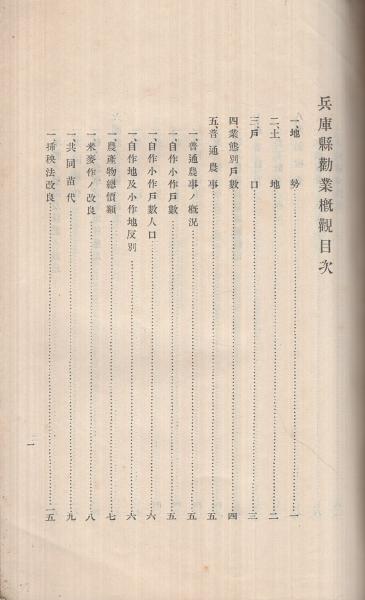 兵庫縣勸業概觀目次
一、地勢……一
二、土地……二
三、戶口……三
四、業態別戶數……四
五、普通農事……五
一、普通農事ノ概況……五
一、自作小作戶數……五
一、自作小作戶數人口……六
一、自作地及小作地反別……六
一、農產物總價額……七
一、米麥作ノ改良……八
一、共同苗代……九
一、挿秧法改良……一五
一